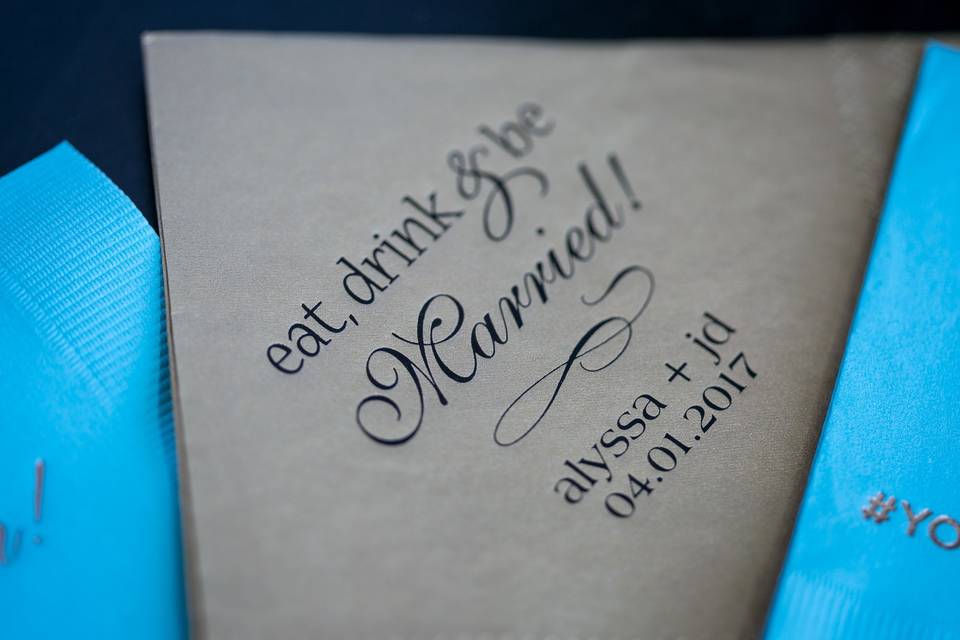 eat, drink & be
Married!
alyssa + jd
04.01.2017
#YO